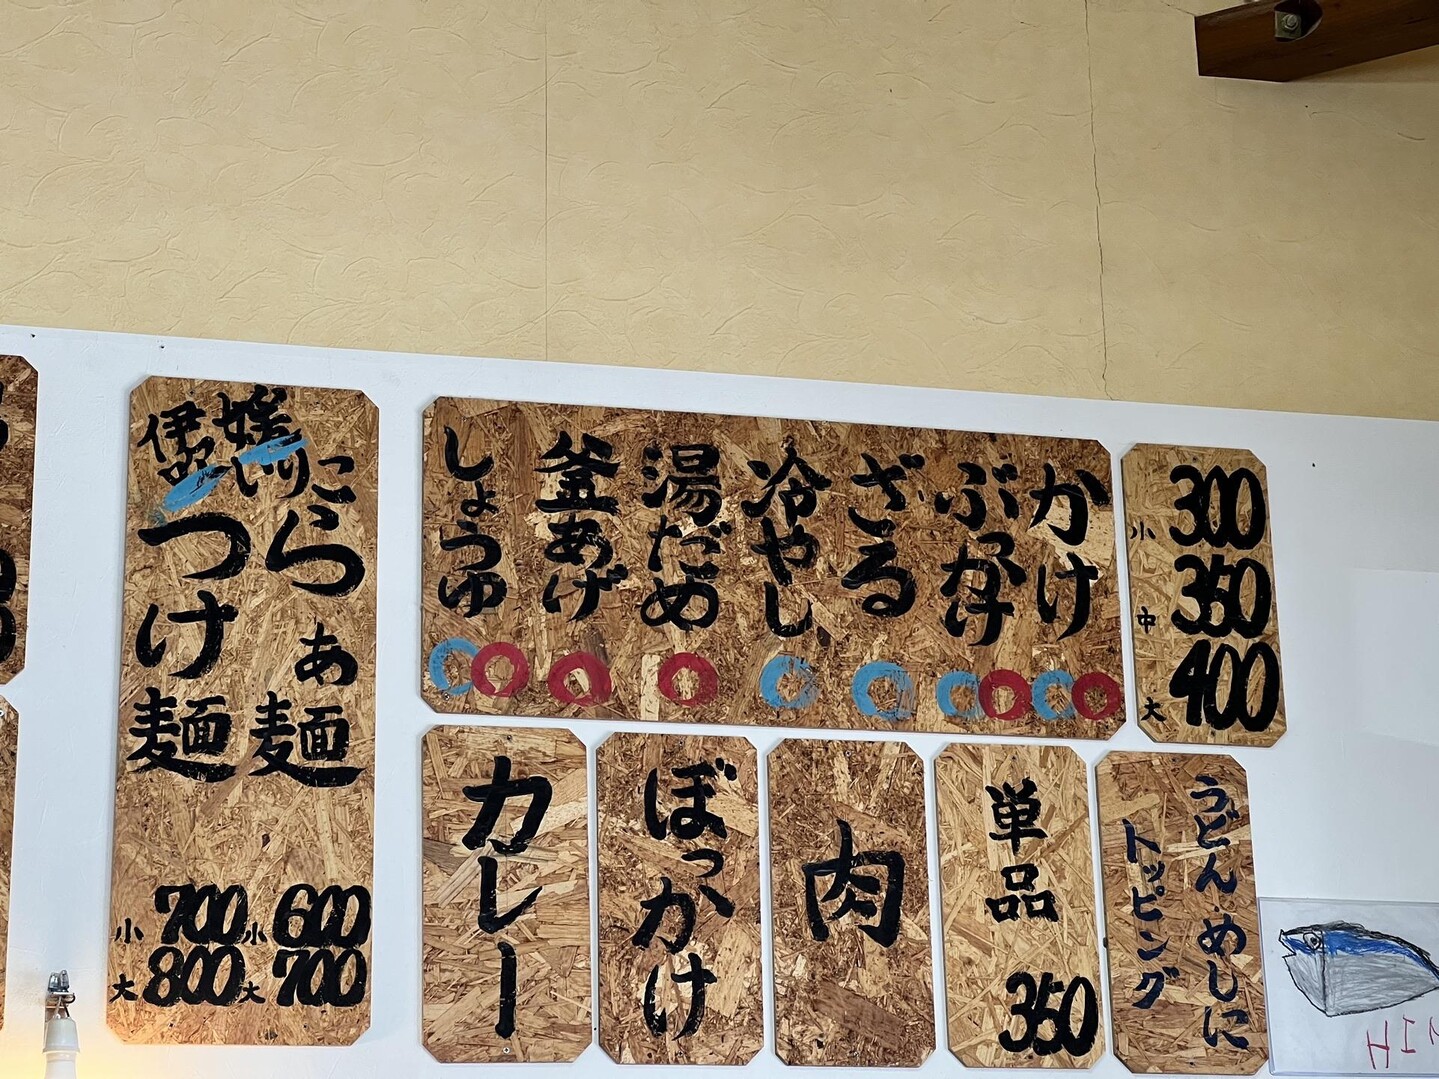 300
小
350
中
400
大
かけ
ぶっかけ
ざる
冷やし
湯だめ
釜あげ
しょうゆ
うどん・めしに
トッピング
単品
350
肉
ぼっかけ
カレー
媛
いりこ
らぁ麺
小 600
大 700
伊吹
つけ麺
小 700
大 800